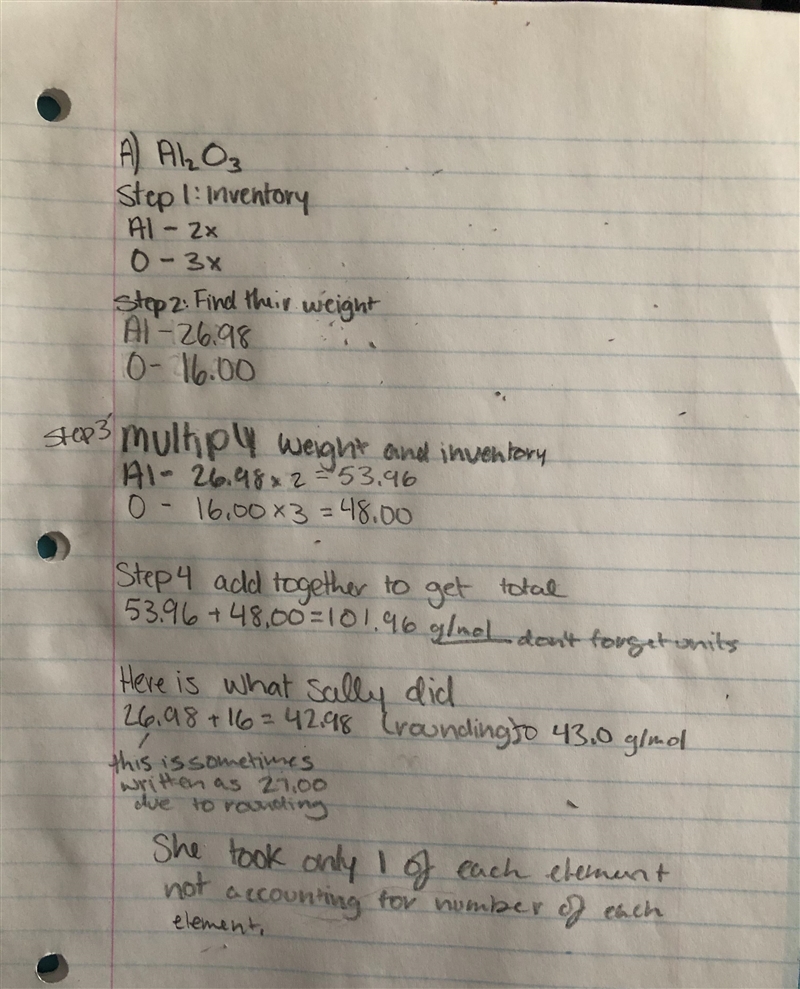 A) Al₂O₃
Step 1: Inventory
Al - 2x
O - 3x
Step 2: Find their weight
Al - 26.98
O - 16.00
Step 3 Multiply weight and inventory
Al - 26.98 x 2 = 53.96
O - 16.00 x 3 = 48.00
Step 4 add together to get total
53.96 + 48.00 = 101.96 g/mol don't forget units
Here is what Sally did
26.98 + 16 = 42.98 (rounding) to 43.0 g/mol
this is sometimes
written as 27.00
due to rounding
She took only 1 of each element
not accounting for number of each
element.